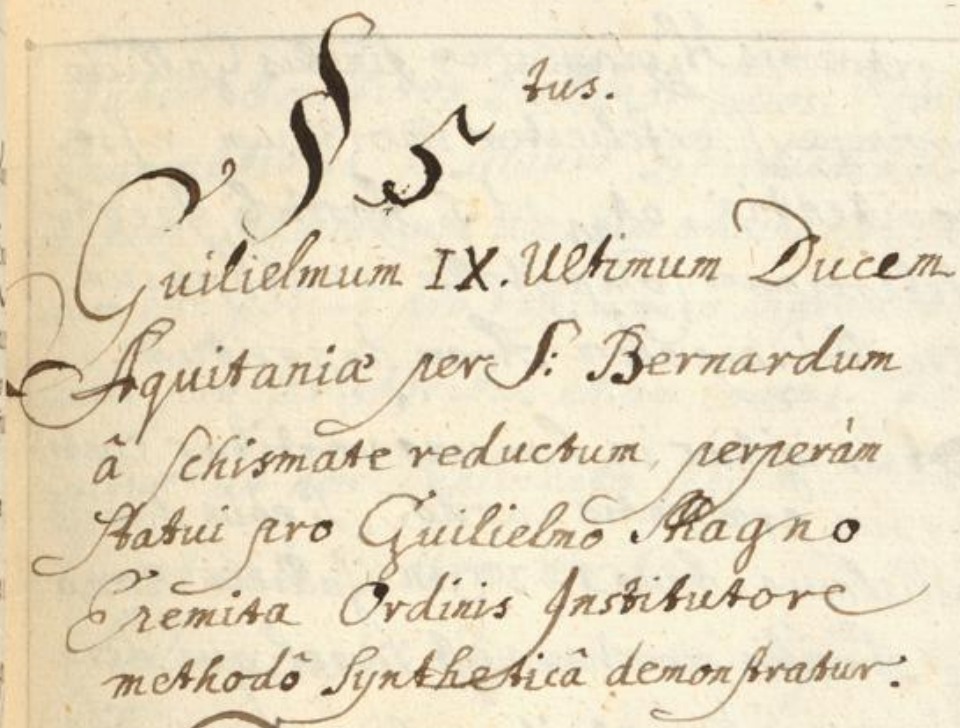 § 5tus.
Guilielmum IX. Ultimum Ducem
Aquitaniæ per S: Bernardum
â Schismate reductum, perperàm
statui pro Guilielmo Magno
Eremita Ordinis Institutore
methodô Syntheticâ demonstratur.